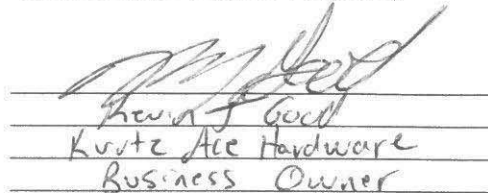 Kevin J Good
Kurtz Ace Hardware
Business Owner